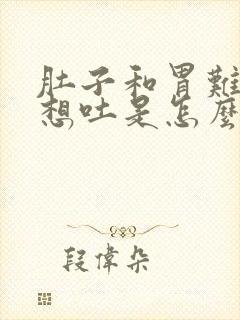 肚子和胃難
想吐是怎麼
段偉朵